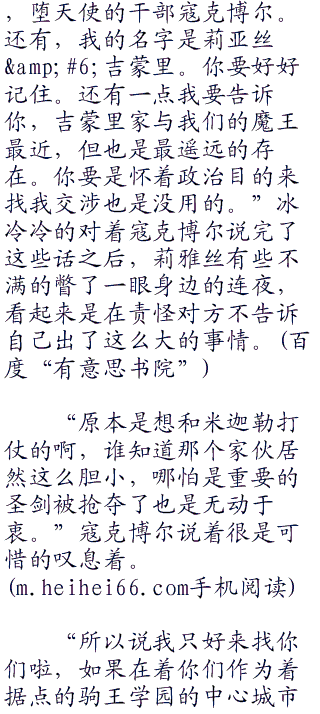 ，堕天使的干部寇克博尔。
还有，我的名字是莉亚丝
&amp;#6;吉蒙里。你要好好
记住。还有一点我要告诉
你，吉蒙里家与我们的魔王
最近，但也是最遥远的存
在。你要是怀着政治目的来
找我交涉也是没用的。”冰
冷冷的对着寇克博尔说完了
这些话之后，莉雅丝有些不
满的瞥了一眼身边的连夜，
看起来是在责怪对方不告诉
自己出了这么大的事情。(百
度“有意思书院”)
“原本是想和米迦勒打
仗的啊，谁知道那个家伙居
然这么胆小，哪怕是重要的
圣剑被抢夺了也是无动于
衷。”寇克博尔说着很是可
惜的叹息着。
(m.heihei66.com手机阅读)
“所以说我只好来找你
们啦，如果在着你们作为着
据点的驹王学园的中心城市